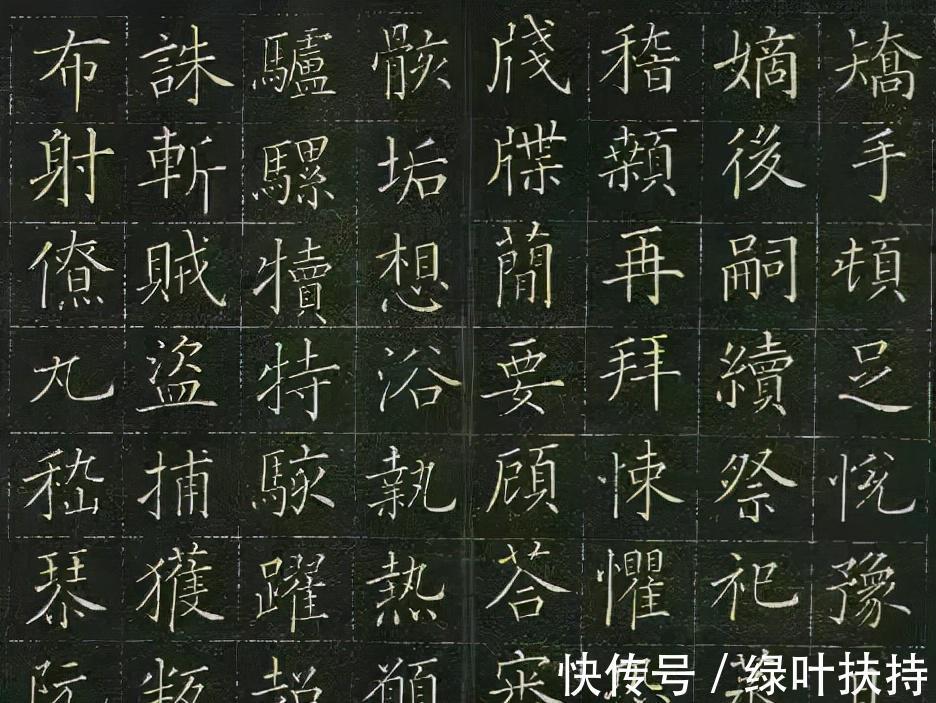 矯手頓足悅豫
嫡後嗣續祭祀
稽顙再拜悚懼
牋牒簡要顧荅審
骸垢想浴執熱願
驢騾犢特駭躍超
誅斬賊盜捕獲叛
布射僚丸嵇琴阮
快传号 / 绿叶扶持